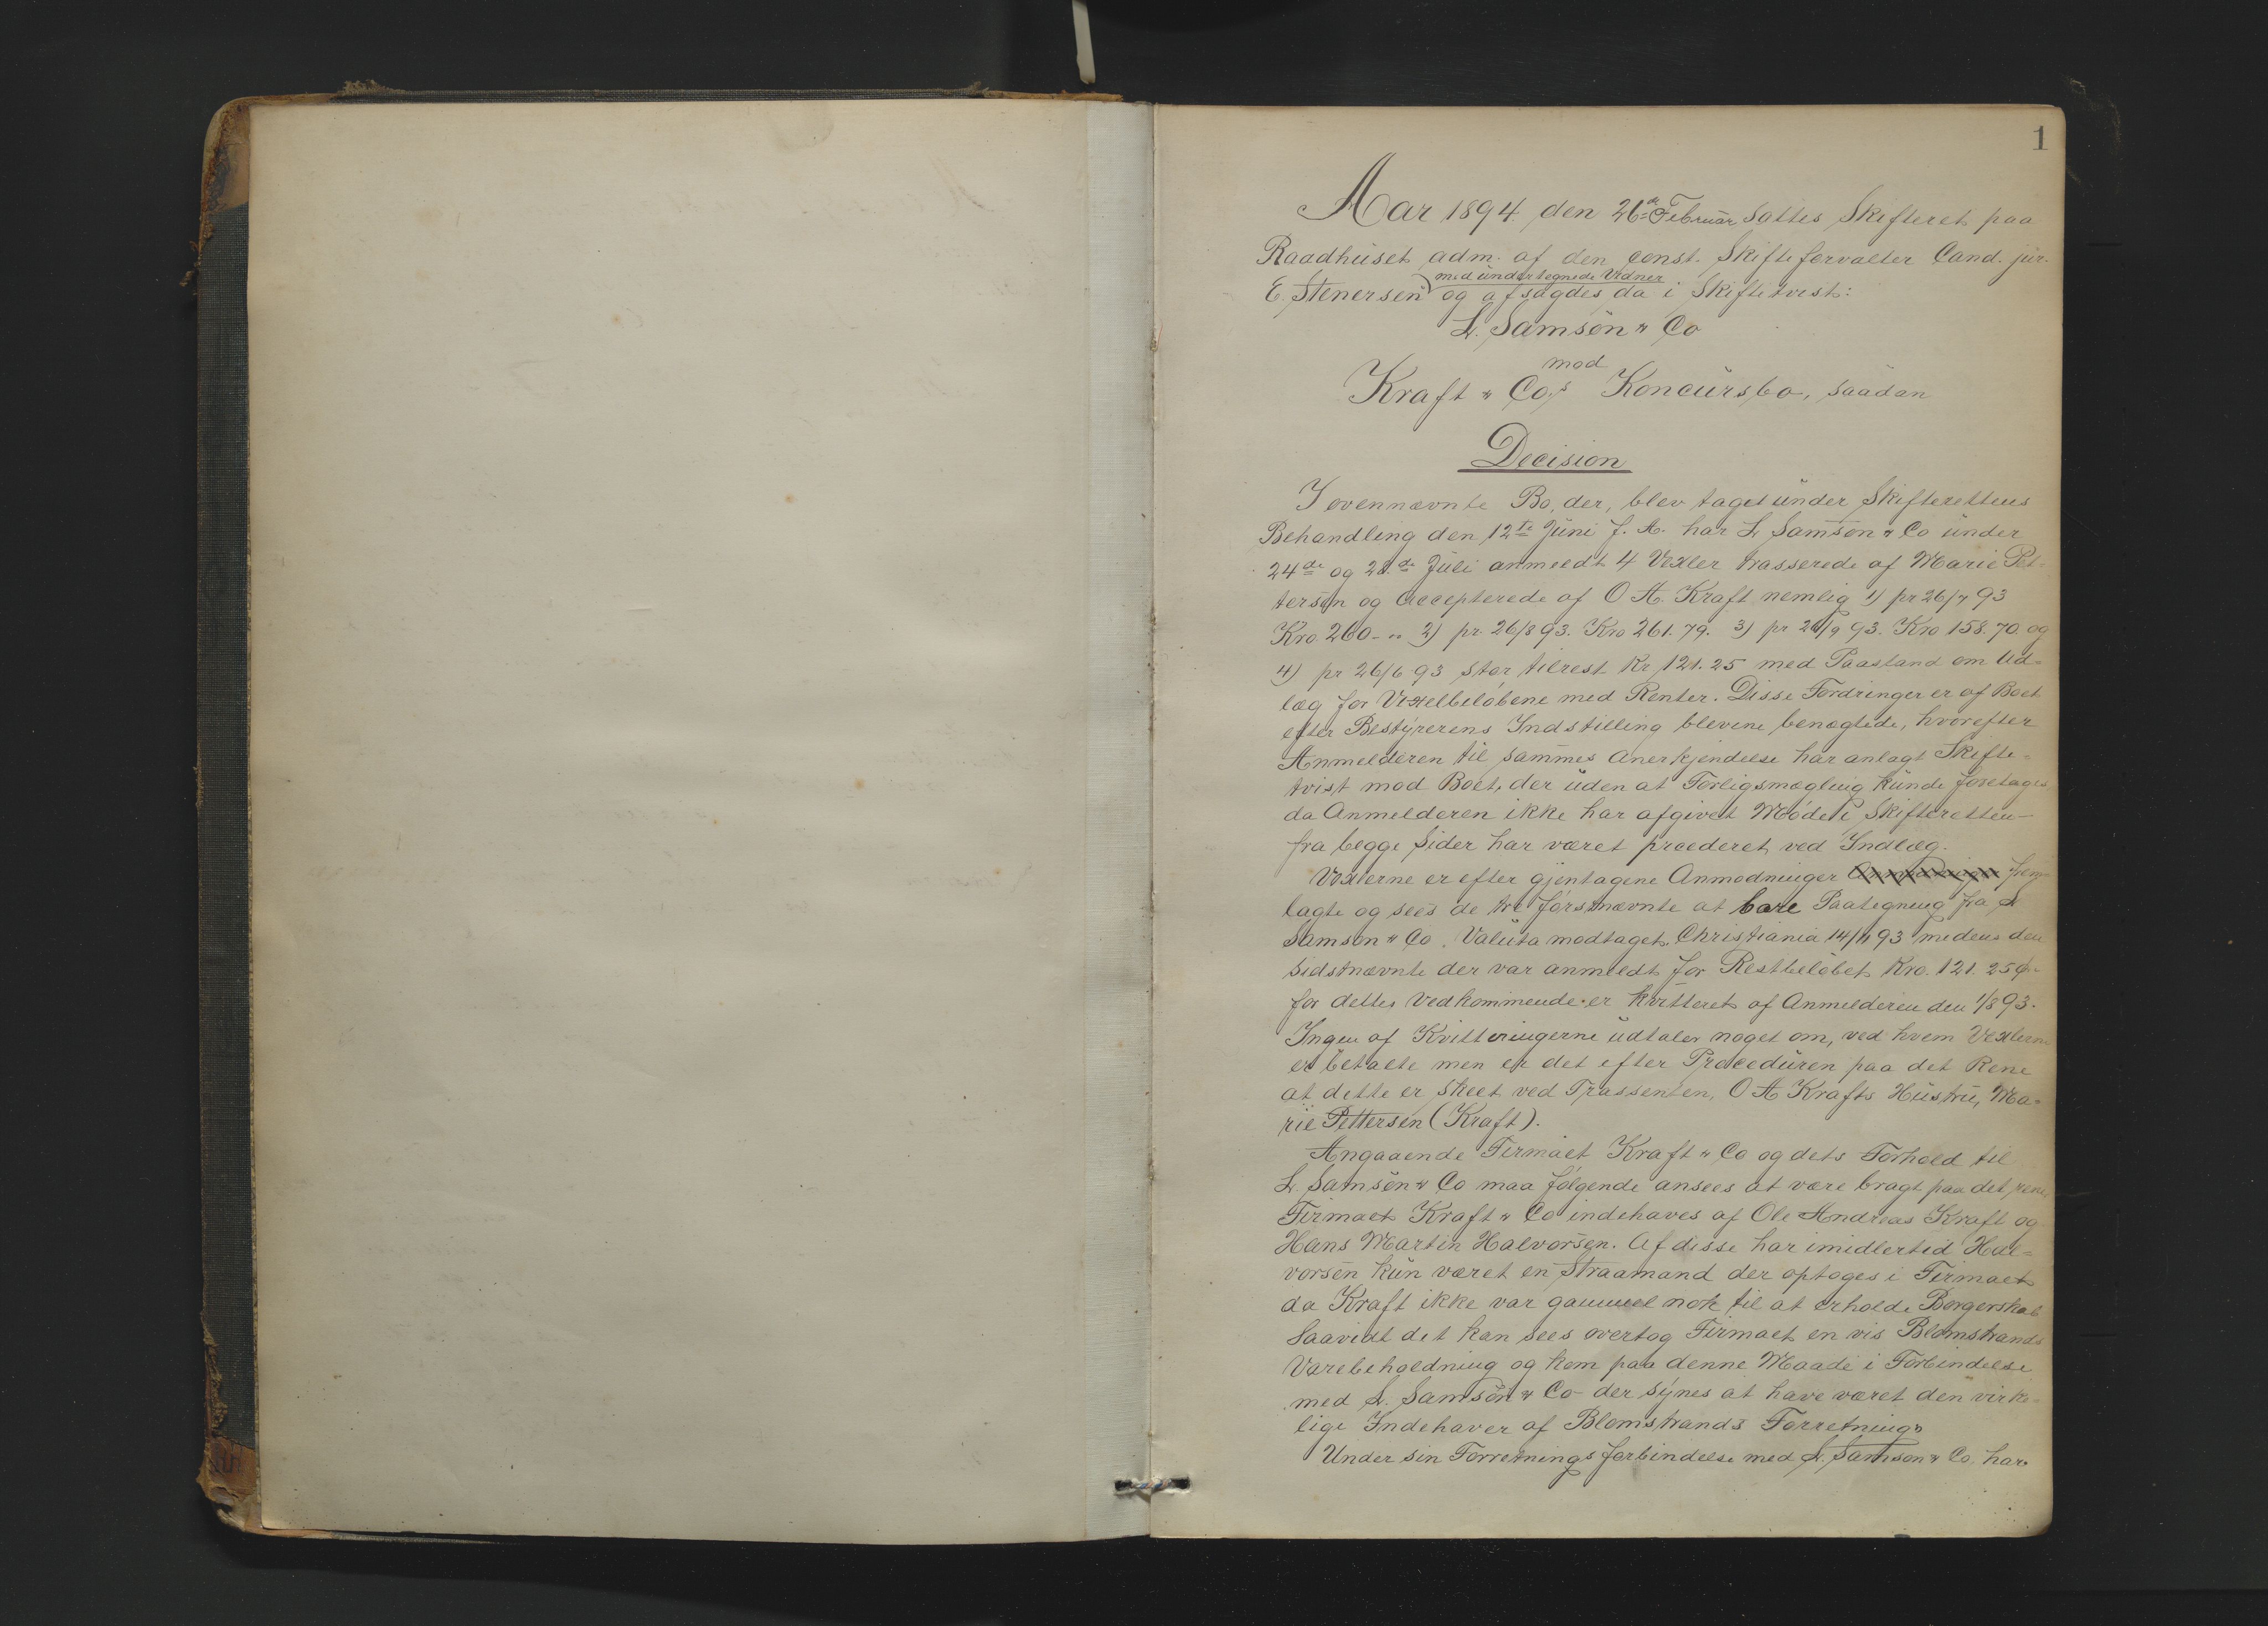 1
Aar 1894 den 26de Februar sattes Skifteret paa
Raadhuset adm. af den const. Skifteforvalter Cand. jur.
med undertegnede Vidner
E. Stenersen og afsagdes da i Skiftetvist:
L. Samson & Co
mod
Kraft & Co's Koncursbo, saadan
Decision
I ovennævnte Bo, der, blev taget under Skifterettens
Behandling den 12te Juni f. A. har L Samson & Co under
24de og 28de Juli anmeldt 4 Vexler trasserede af Marie Pet-
tersen og Accepterede af O A. Kraft nemlig 1) pr 26/7 93
Kro. 260 - " 2) pr. 26/8 93. Kro 261. 79. 3) pr 26/9 93. Kro 158. 70. og
4) pr 26/6 93 stor tilrest Kr 121. 25 med Paastand om Ud-
læg for Vexelbeløbene med Renter. Disse Fordringer er af Boet
efter Bestyrerens Indstilling blevne benægtede, hvorefter
Anmelderen til sammes Anerkjendelse har anlagt Skifte-
tvist mod Boet, der uden at Forligsmægling kunde foretages
da Anmelderen ikke har afgivet Møde i Skifteretten -
fra begge Sider har været procederet ved Indlæg.
Vexlerne er efter gjentagene Anmodninger frem-
lagte og sees de tre førstnævnte at bære Paategning fra L
Samson & Co. Valuta modtaget. Christiania 14/11 93 medens den
sidstnævnte der var anmeldt for Restbeløbet Kro. 121. 25 Ø-
for dettes Vedkommende er kvitteret af Anmelderen den 1/8 93.
Ingen af Kvitteringerne udtaler noget om, ved hvem Vexlerne
er betalte men er det efter Proceduren paa det Rene
at dette er skeet ved Trassenten, O A Krafts Hustru, Ma-
rie Pettersen (Kraft).
Angaaende Firmaet Kraft & Co og dets Forhold til
L. Samson & Co maa følgende ansees at være bragt paa det rene,
Firmaet Kraft & Co indehaves af Ole Andreas Kraft og
Hans Martin Halvorsen. Af disse har imidlertid Hal-
vorsen kun været en Straamand der optoges i Firmaet
da Kraft ikke var gammel nok til at erholde Borgerskab
Saavidt det kan sees overtog Firmaet en vis Blomstrands
Varebeholdning og kom paa denne Maade i Forbindelse
med L. Samson & Co der synes at have været den virke-
lige Indehaver af Blomstrands Forretning.
Under sin Forretningsforbindelse med L. Samson & Co. har